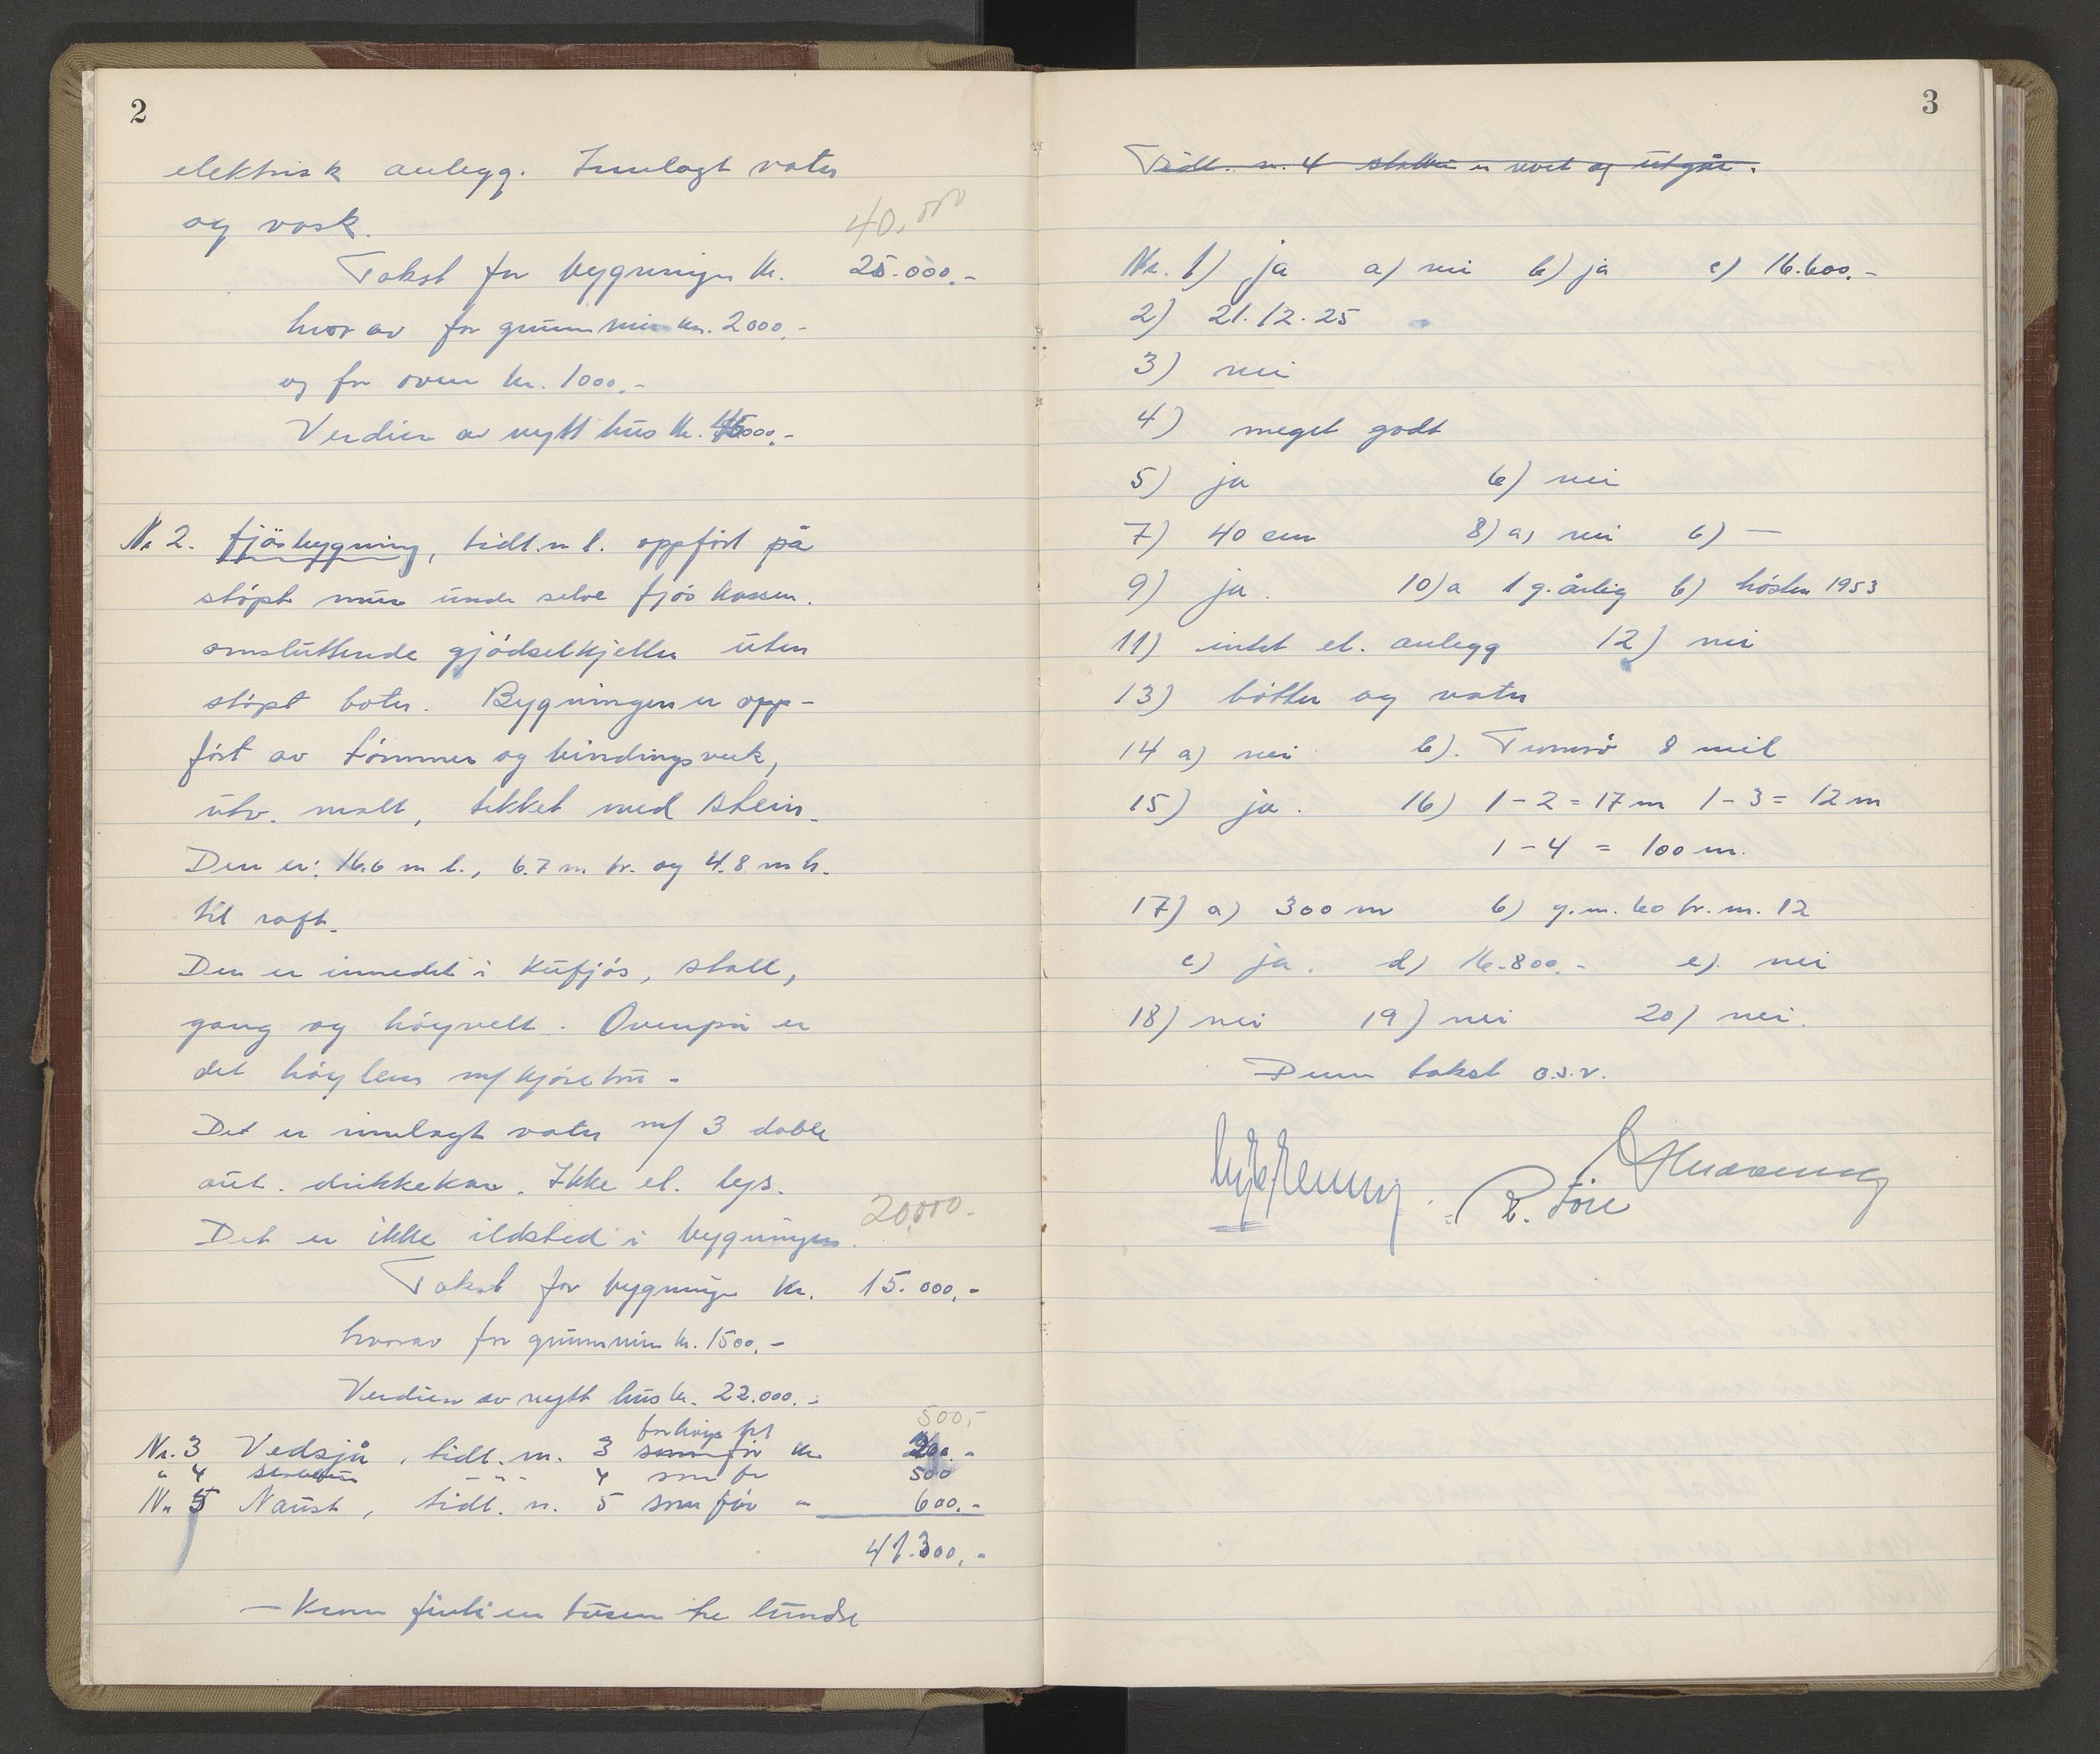 2
elektrisk anlegg. Innlagt vatn
og vask.
40,000
Takst for bygningen kr. 25.000.-
hvorav for grunnmur kr. 2000.-
og for ovner kr. 1000.-
Verdien av nytt hus kr. 45000.-
Nr 2. Fjösbygning, tidl. n 1. oppfört på
stöpt mur under selve fjöskassen.
omsluttende gjödselkjeller uten
stöpt botn. Bygningen er opp-
fört av tömmer og bindingsverk,
utv. malt, tekket med stein.
Den er: 16.6 m l., 6.7 m. br. og 4.8 m h.
til raft.
Den er innredet i kufjös, stall,
gang og höyvelt. Ovenpå er
det höylem m/ kjörebru.
Det er innlagt vatn m/ 3 doble
aut. drikkekar. Ikke el. lys.
20,000.-
Det er ikke ildsted i bygningen.
Takst for bygningen kr. 15.000.-
hvorav for grunnmur kr. 1500.-
Verdien av nytt hus kr. 22.000.-
500,-
forhöyet fra
Nr. 3 Vedsjå, tidl. nr. 3 som för kr. 200.-
" 4 - " - 4 som för 500
Nr 5 Naust, tidl. n. 5 som för " 600.-
41.300.-
- Kroner förti en tusen tre hundre
3
Tidl. n. 4 stabbur er revet og utgår.
Nr. 1) ja a) nei b) ja c) 16.600.-
2) 21.12.25
3) nei
4) meget godt
5) ja 6) nei
7) 40 cm 8) a) nei b) —
9) ja. 10) a 1 g. årlig b) hösten 1953
11) intet el. anlegg 12) nei
13) bötter og vatn
14 a) nei b). Tromsö 8 mil
15) ja. 16) 1-2 = 17 m 1-3 = 12 m
1-4 = 100 m.
17) a) 300 m b) g.m. 60 br. m. 12
c) ja. d) 16.800.- e). nei
18) nei 19) nei 20) nei.
Denne takst o.s.v.